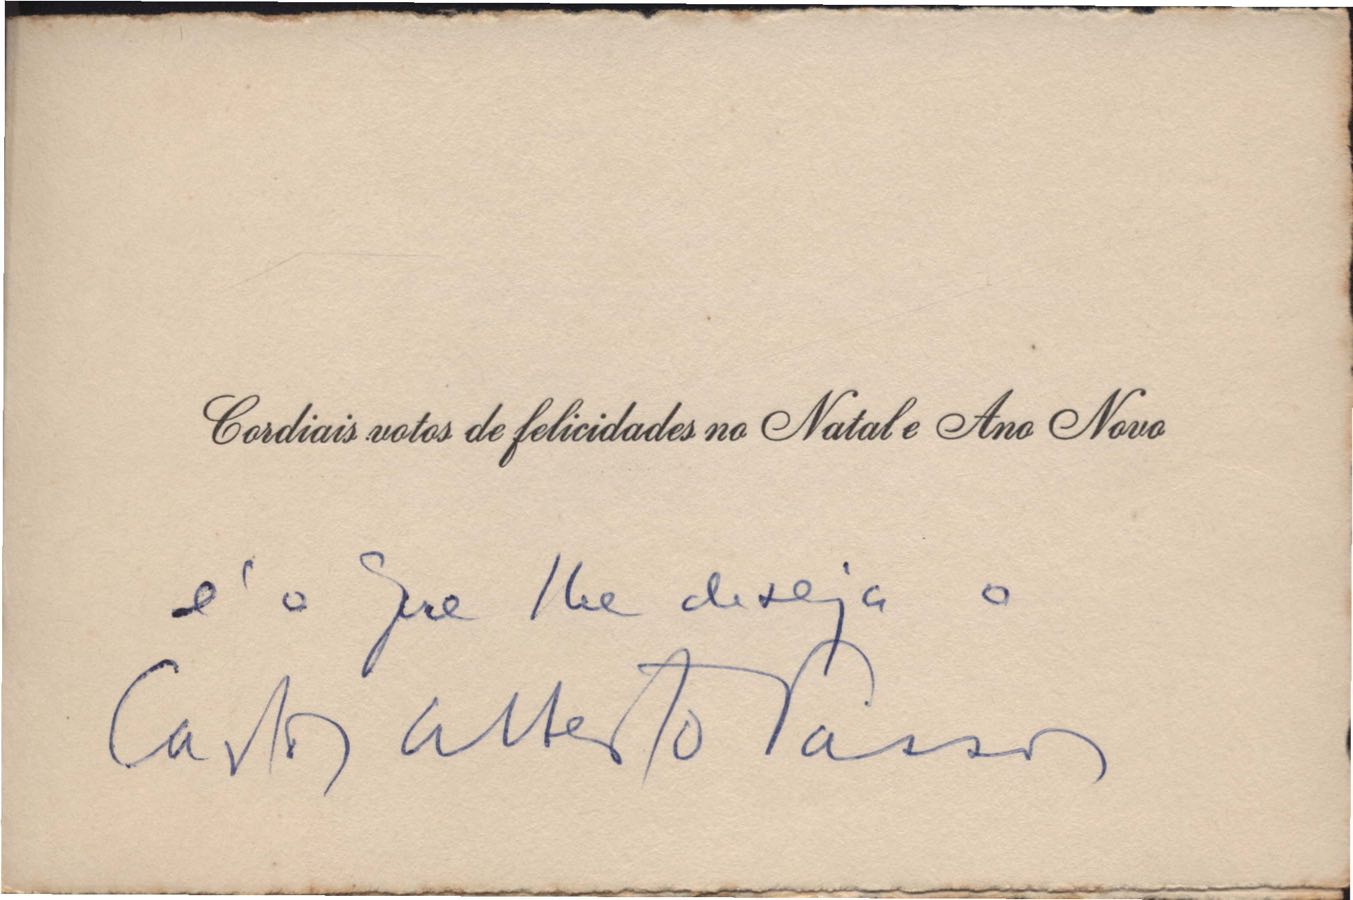 Cordiais votos de felicidades no Natal e Ano Novo
é o que lhe deseja o
Carlos Alberto Passos